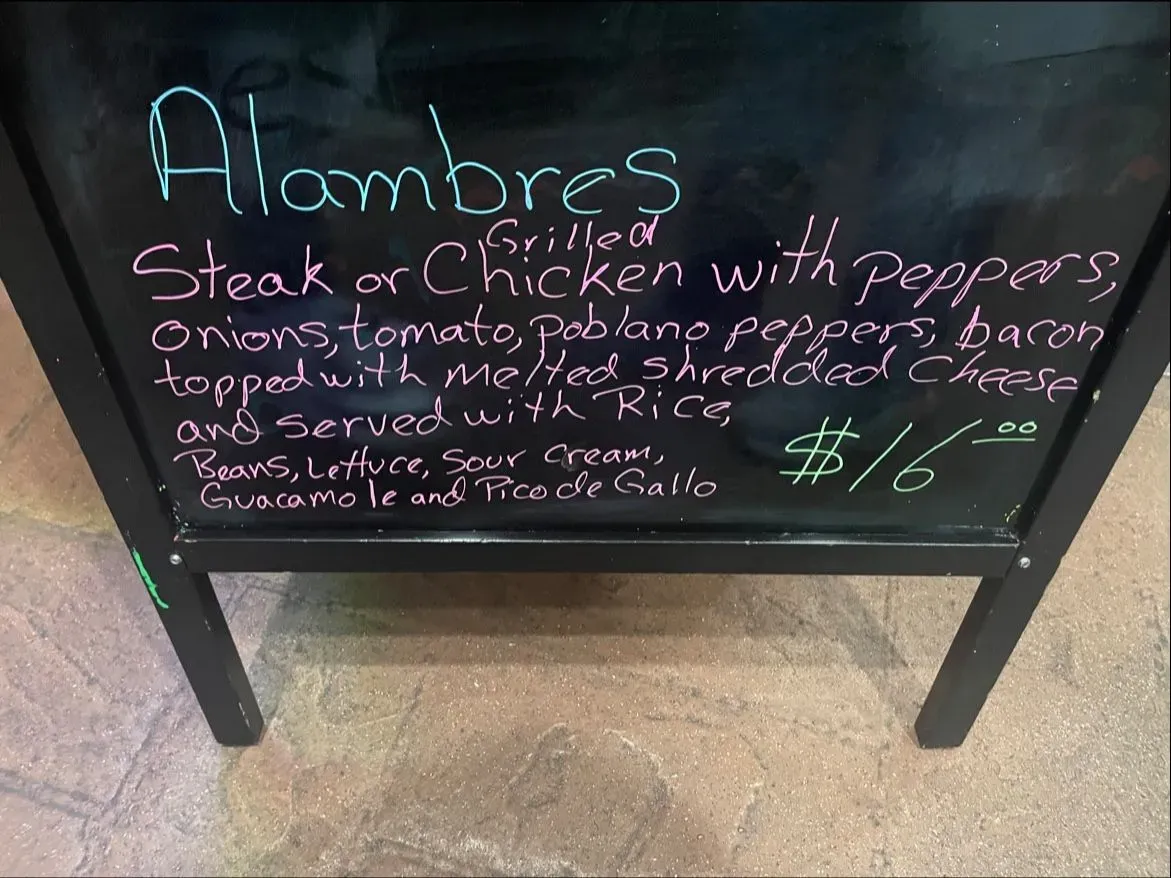 Alambres
Grilled
Steak or Chicken with peppers,
onions, tomato, poblano peppers, bacon
topped with melted shredded Cheese
and served with Rice,
Beans, Lettuce, Sour Cream,
Guacamole and Pico de Gallo
$16.00